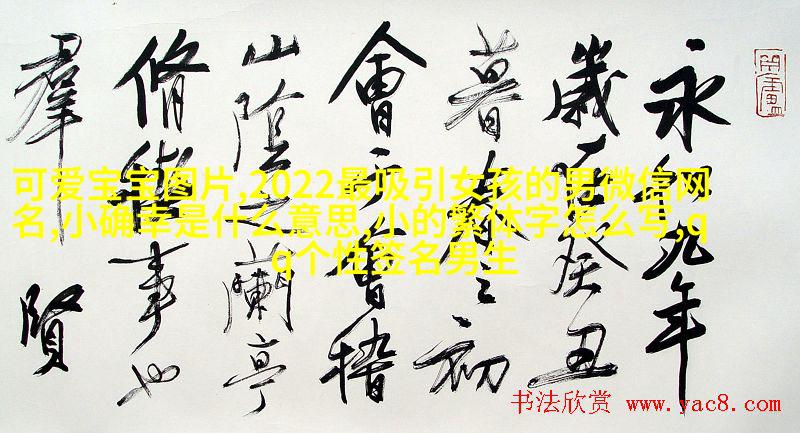 永和九年
歲在癸丑
暮春之初
會于會稽
山陰之蘭亭
脩禊事也
羣賢
可爱宝宝图片,2022最吸引女孩的男微信网
名,小确幸是什么意思,小的繁体字怎么写,q
q个性签名男生
书法欣赏 www.yac8.com